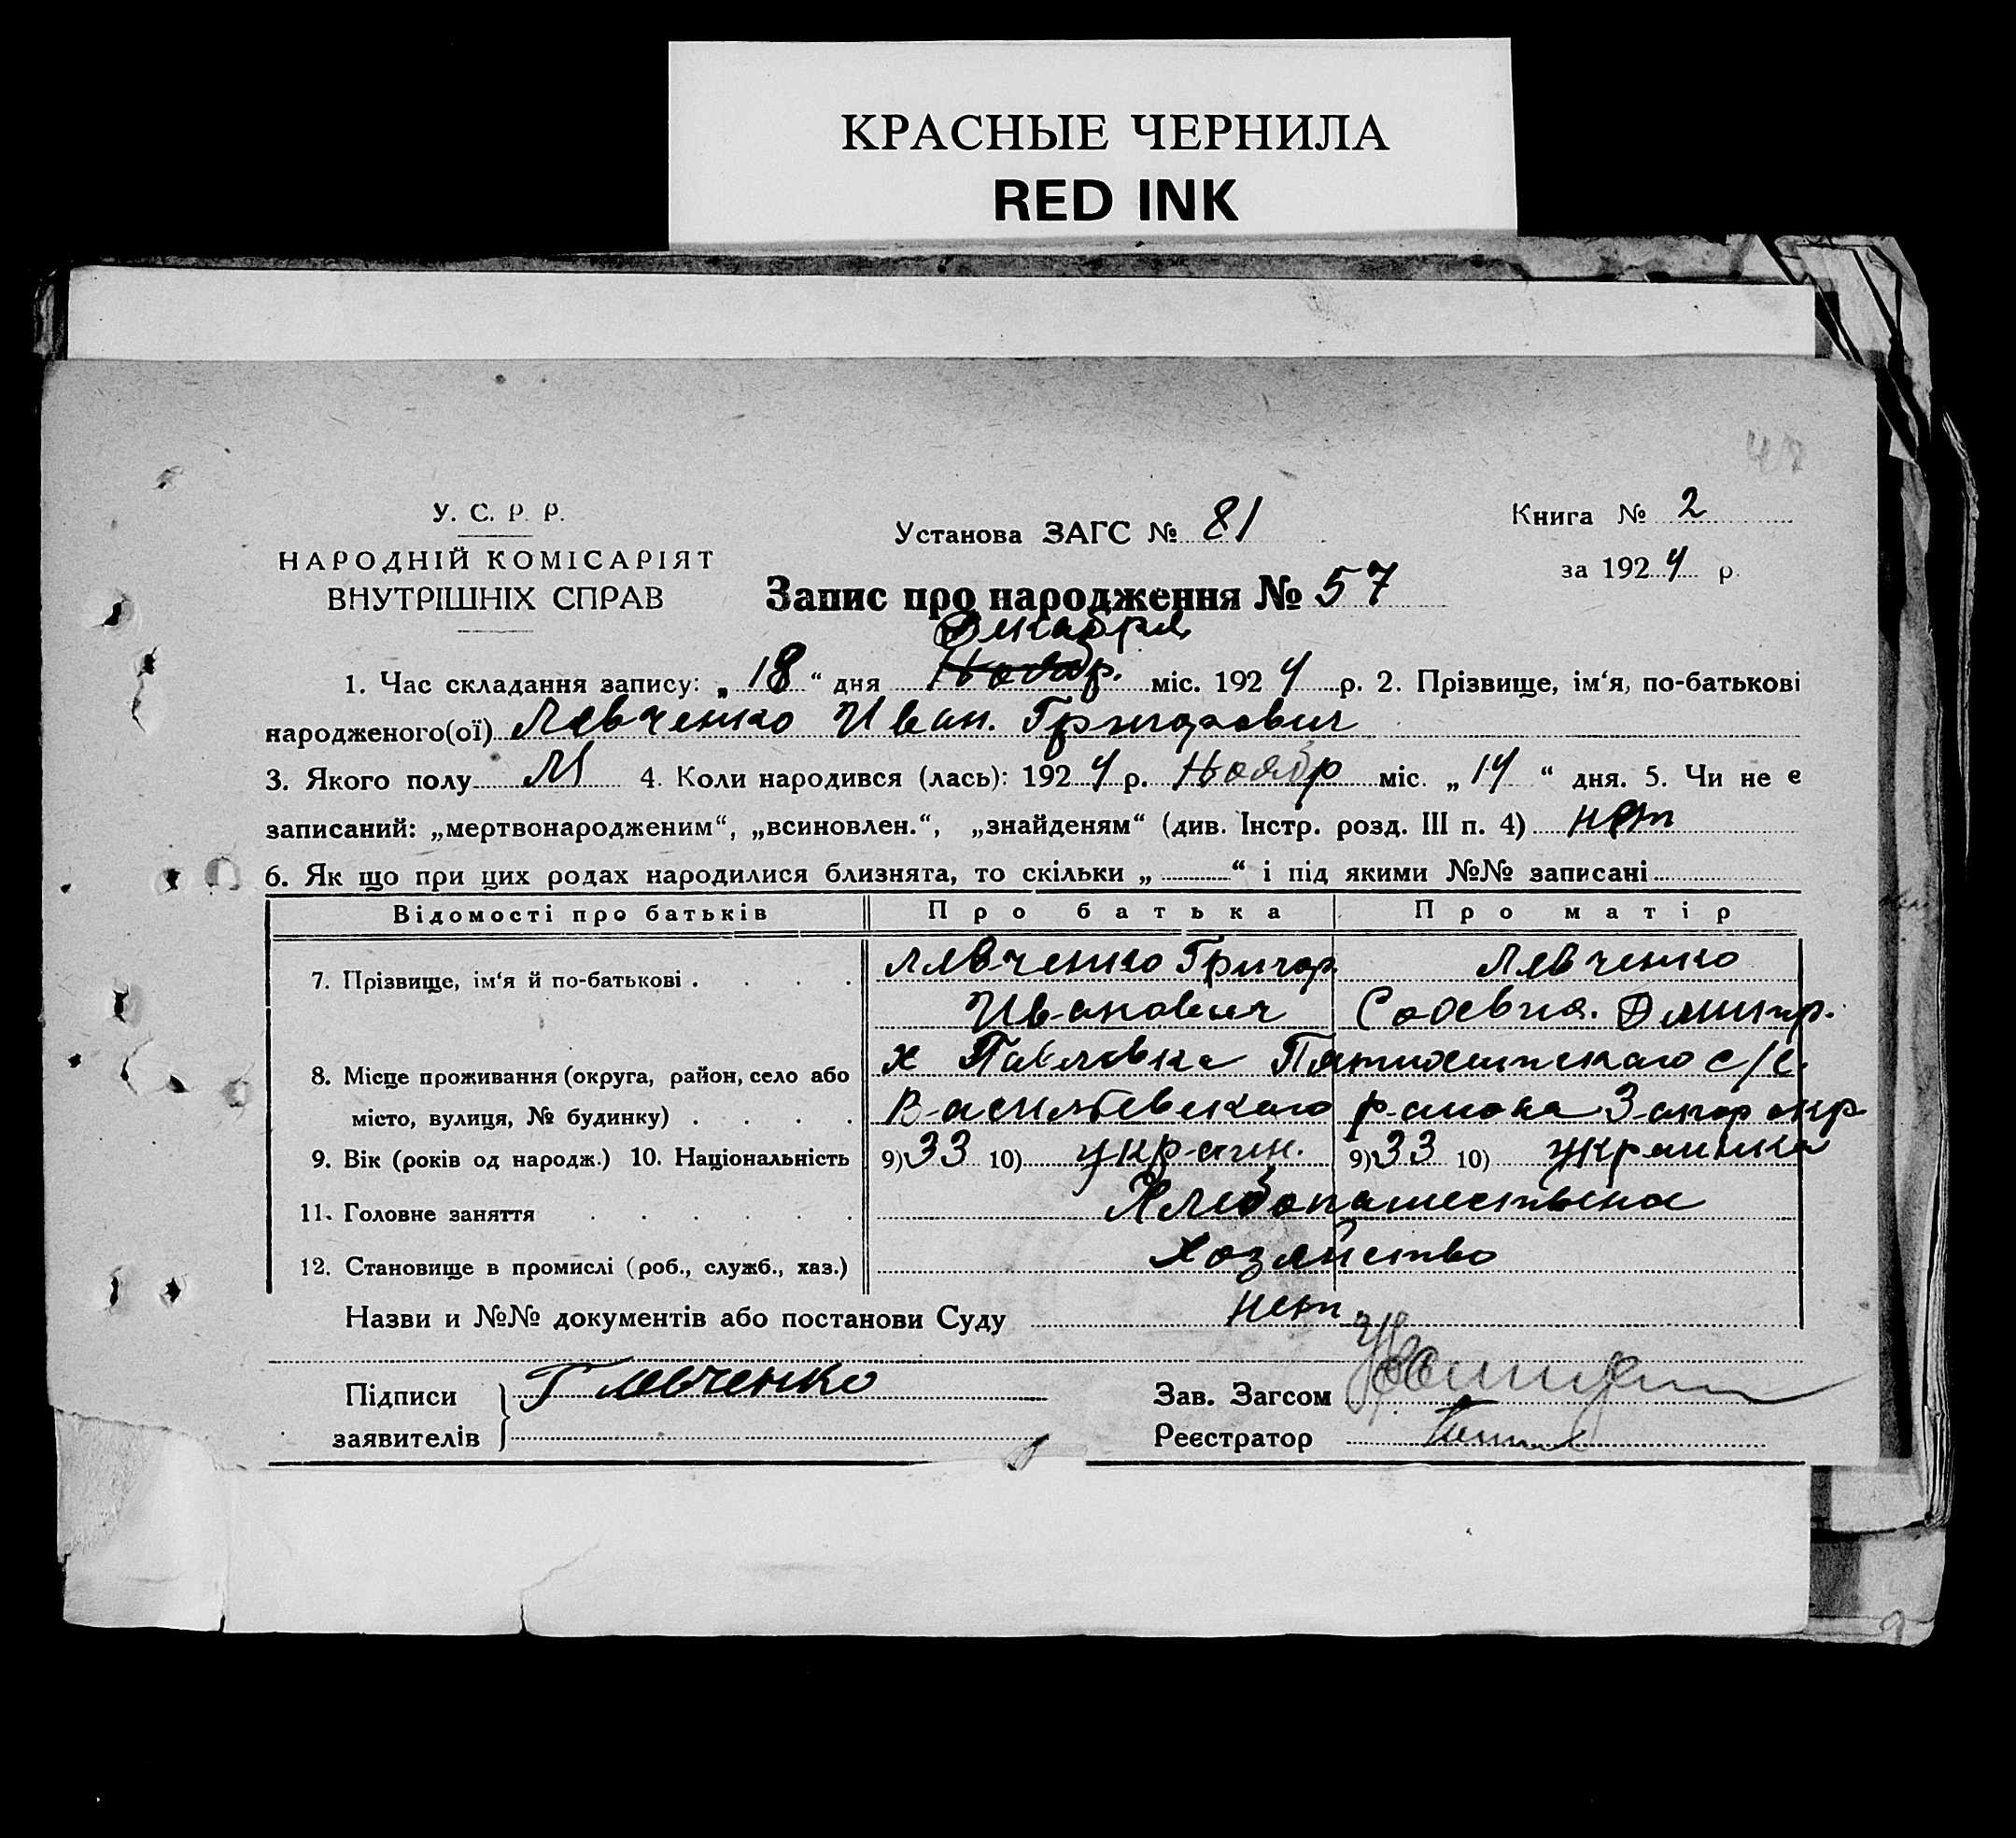 КРАСНЫЕ ЧЕРНИЛА
RED INK
У. С. Р. Р.
НАРОДНІЙ КОМІСАРІЯТ
ВНУТРІШНІХ СПРАВ
Установа ЗАГС № 81
Книга № 2
за 1924 р.
Запис про народження № 57
Декабря
1. Час складання запису: „18“ дня Ноябр. міс. 1924 р. 2. Прізвище, ім‘я, по-батькові
народженого(ої) Левченко Иван. Григорович
3. Якого полу М 4. Коли народився (лась): 1924 р. Ноябр міс. „14“ дня. 5. Чи не є
записаний: „мертвонародженим“, „всиновлен.“, „знайденям“ (див. Інстр. розд. III п. 4) нет
6. Як що при цих родах народилися близнята, то скільки „ “ і під якими №№ записані
Відомості про батьків Про батька Про матір
7. Прізвище, ім‘я й по-батькові Левченко Григор. Левченко
Иванович Дмитр.
8. Місце проживання (округа, район, село або х Павловка с/с.
місто, вулиця, № будинку) Васильевского района Запор окр
9. Вік (років од народж.) 10. Національність 9) 33 10) украин. 9) 33 10) украинка
11. Головне заняття
12. Становище в промислі (роб., служб., хаз.) Хозяйство
Назви и №№ документів або постанови Суду нет.
Підписи Г Левченко Зав. Загсом
заявителів Реєстратор